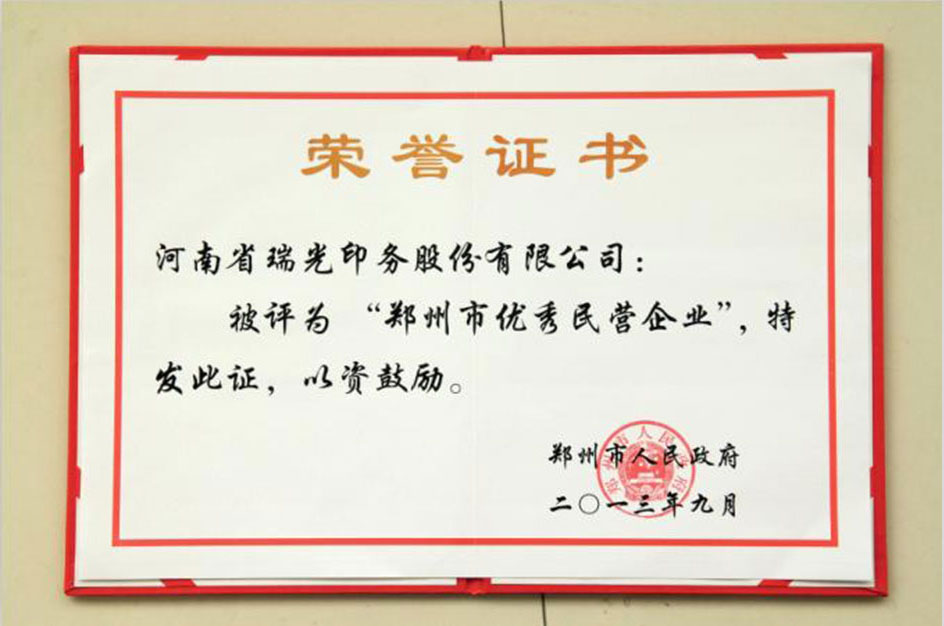 荣誉证书
河南省瑞光印务股份有限公司：
被评为 “郑州市优秀民营企业”，特
发此证，以资鼓励。
郑州市人民政府
二〇一三年九月
郑州市人民政府